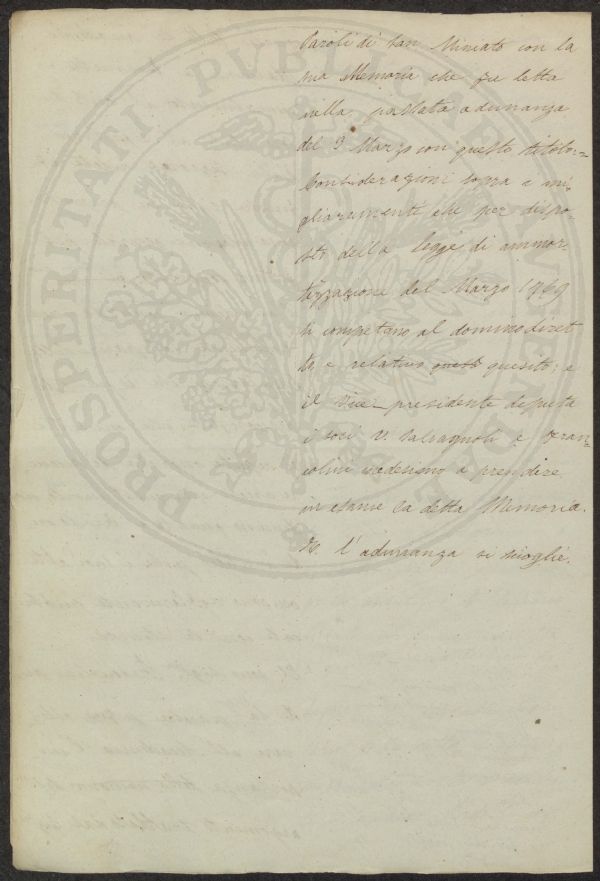 Paroli di San Miniato con la
sua Memoria che fu letta
nella passata adunanza
del 3 Marzo con questo titolo:=
Considerazioni sopra i mi=
glioramenti che per dispo=
sto della legge di ammor=
tizzazione del Marzo 1769
si competano al domino diret
to, e relativo questo quesito; e
il Vice-presidente deputa
i soci V. Salvagnoli e Fran=
colini medesimo a prendere
in esame la detta Memoria.
E l'adunanza si scioglie.
PROSPERITATI PUBLICAE AUGENDAE